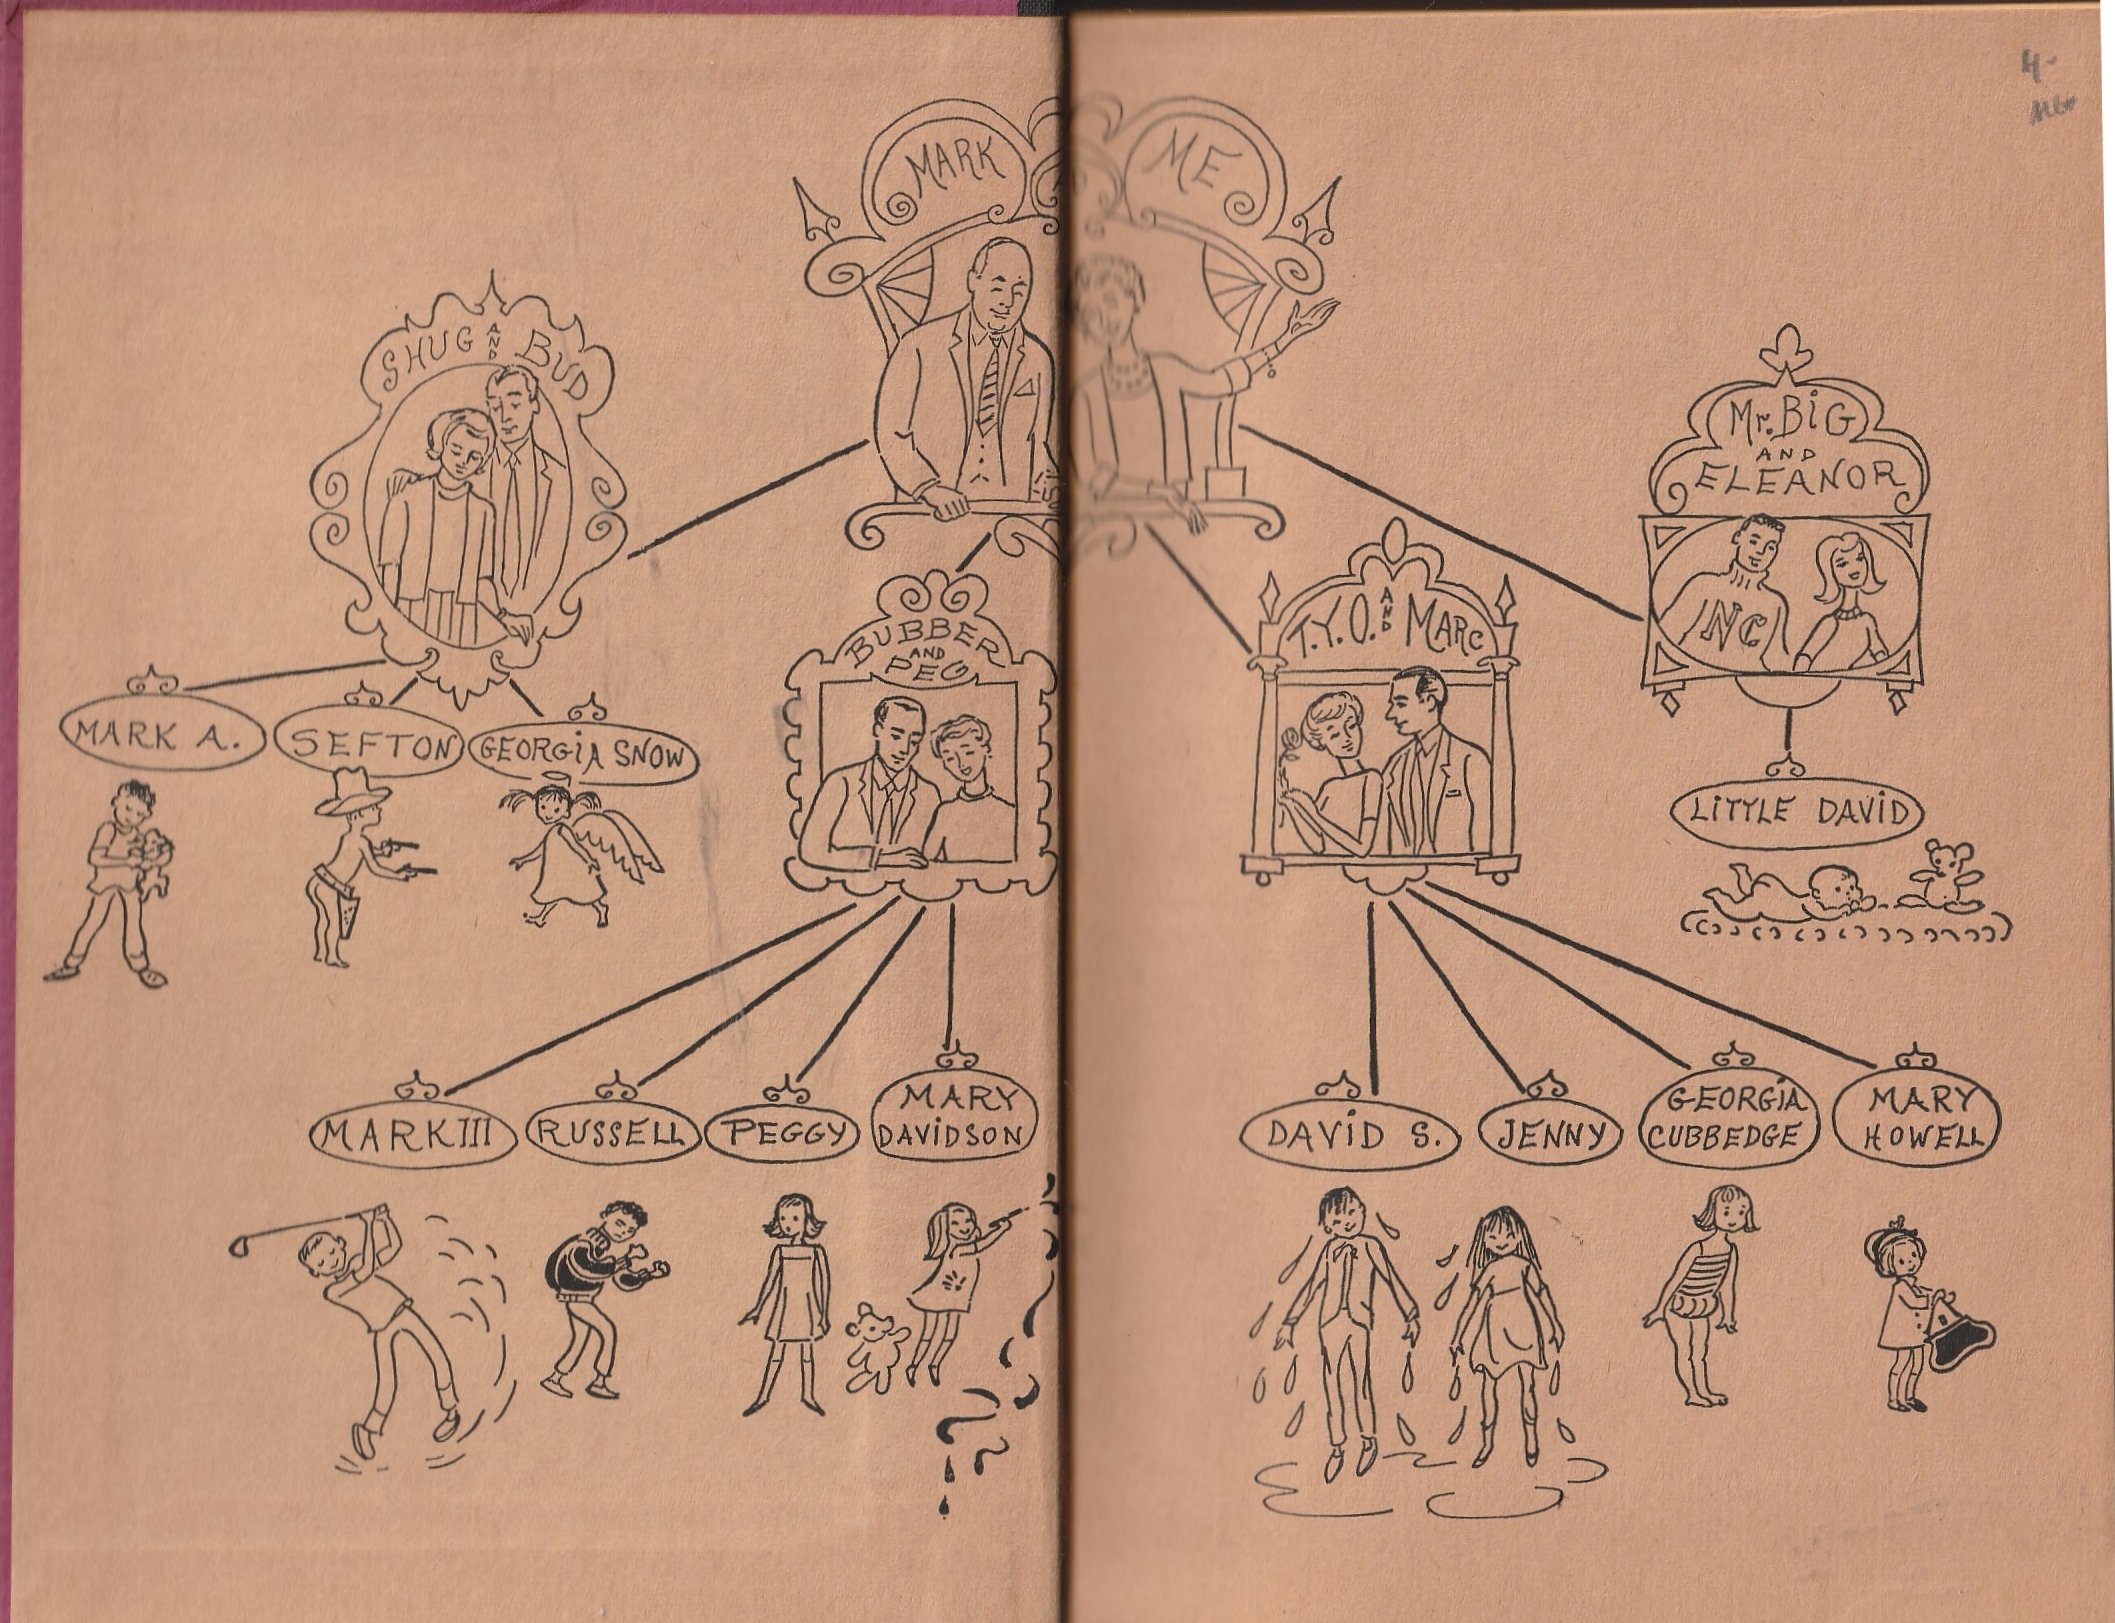 4-
MARK
ME
SHUG AND BUD
Mr. BiG
AND
ELEANOR
NC
BUBBER
AND
PEG
T.Y.O. AND MARC
MARK A.
SEFTON
GEORGiA SNOW
LiTTLE DAViD
MARK III
RUSSELL
PEGGY
MARY
DAViDSON
DAViD S.
JENNY
GEORGiA
CUBBEDGE
MARY
HOWELL